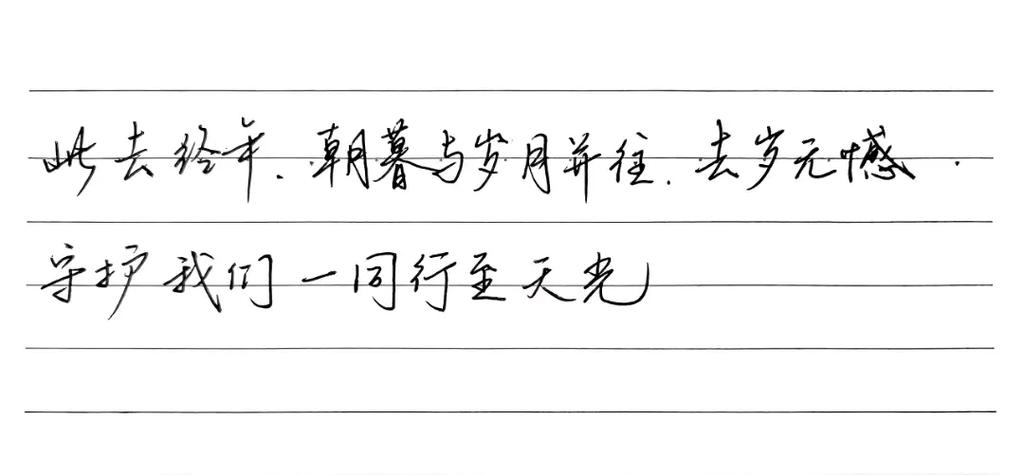 此去经年.朝暮与岁月并往.去岁无憾.
守护我们一同行至天光